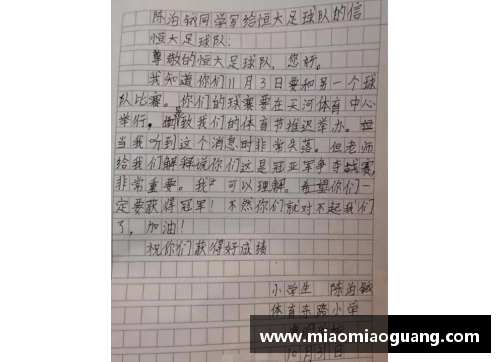 陈泊钺同学写给恒大足球队的信
恒大足球队:
尊敬的恒大足球队，您好。
我知道你们11月3日要和另一个球
队比赛。你们的球赛要在天河体育中心
举行，导致我们的体育节推迟举办。
当我听到这个消息时非常失落。但老师
给我们解释说你们这是冠亚军争夺战赛，
非常重要。我可以理解。希望你们一
定要获得冠军！不然你们就对不起我们
了，加油！
祝你们获得好成绩
小学生 陈泊钺
体育东路小学
10月31日
www.miaomiaoguang.com